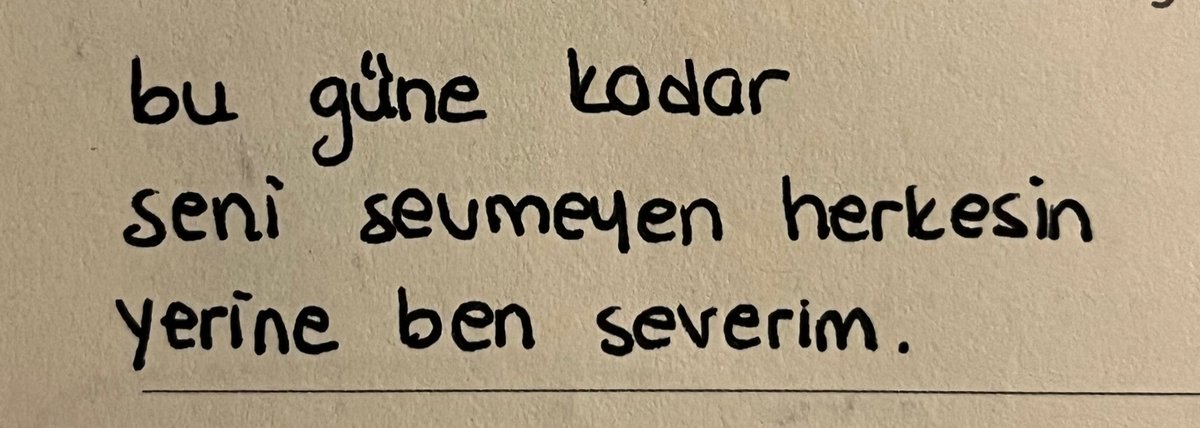 bu güne kadar
seni sevmeyen herkesin
yerine ben severim.